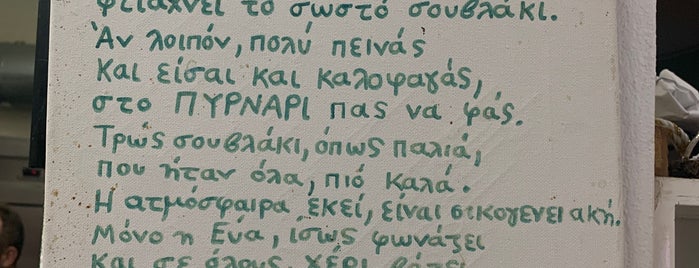 φτιάχνει το σωστό σουβλάκι.
Ἀν λοιπόν, πολύ πεινάς
Και είσαι και καλοφαγάς,
στο ΠΥΡΝΑΡΙ πας να φάς.
Τρώς σουβλάκι, όπως παλιά,
που ήταν όλα, πιό καλά.
Η ατμόσφαιρα εκεί, είναι οικογενειακή.
Μόνο η Εύα, ίσως φωνάζει
Και σε όλους, χέρι βάζει